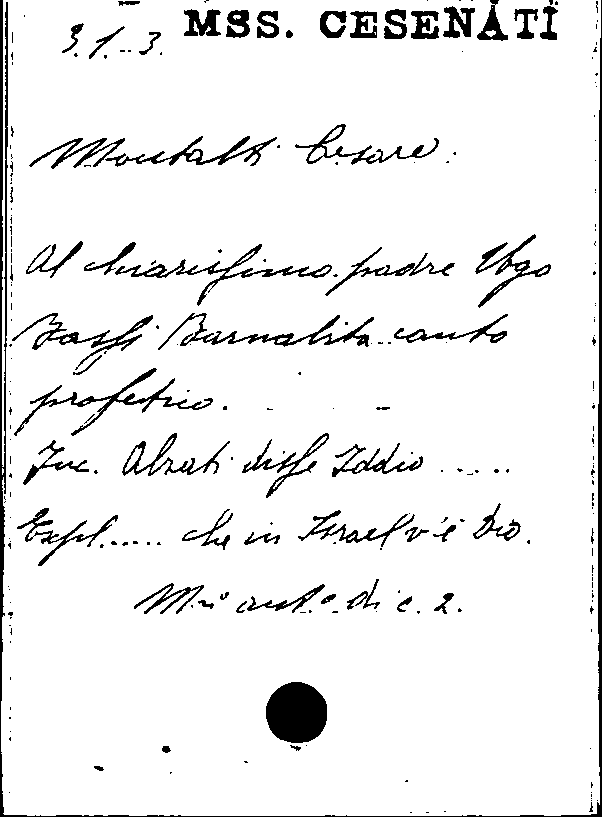 3.1.-3. MSS. CESENATI
Montalti Cesare.
Al chiarissimo padre Ugo
Bassi Barnabita canto
profetico.
Inc. Alzati disse Iddio .....
Expl..... che in Israel v'è Dio.
Ms. aut.º di c. 2.